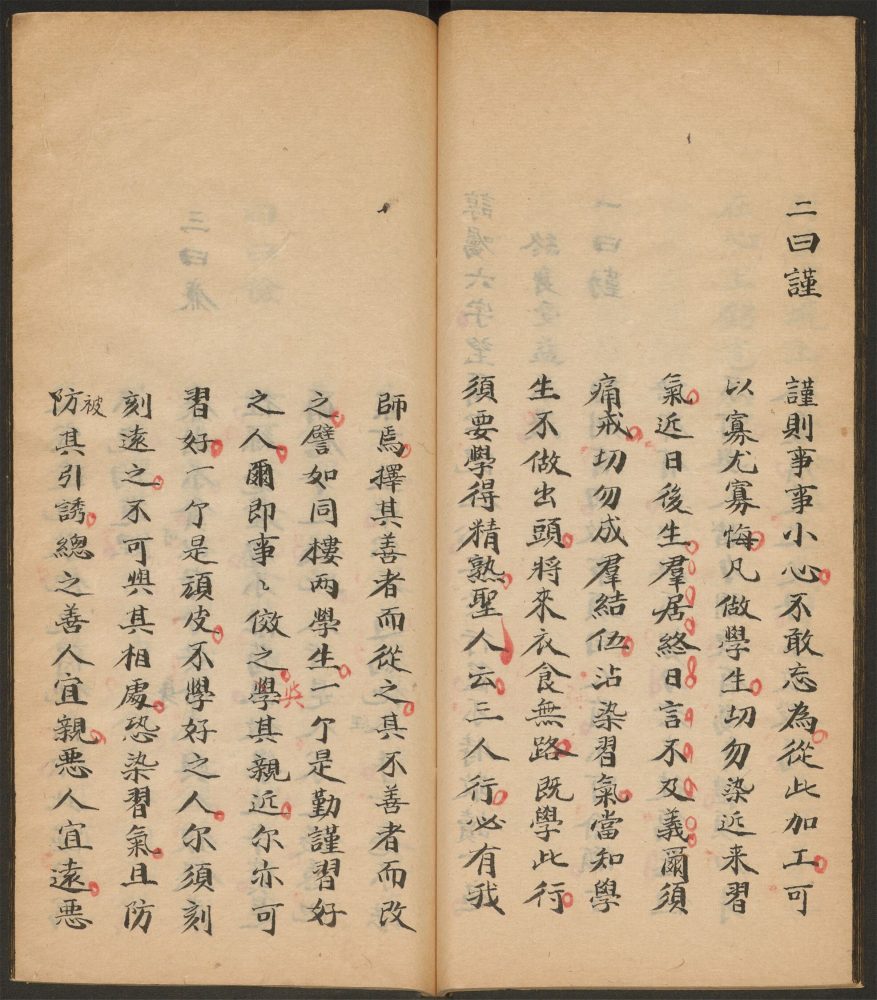 二曰謹
謹則事事小心不敢忘為從此加工可
以寡尤寡悔凡做學生切勿染近来習
氣近日後生羣居終日言不及義爾須
痛戒切勿成羣結伍沾染習氣當知學
生不做出頭將來衣食無路既學此行
須要學得精熟聖人云三人行必有我
師焉擇其善者而從之其不善者而改
之譬如同樓两學生一个是勤謹習好
之人爾即事〻傚之學其親近尔亦可
習好一个是頑皮不學好之人尔須刻
刻遠之不可與其相處恐染習氣且防
防被其引誘總之善人宜親惡人宜遠惡